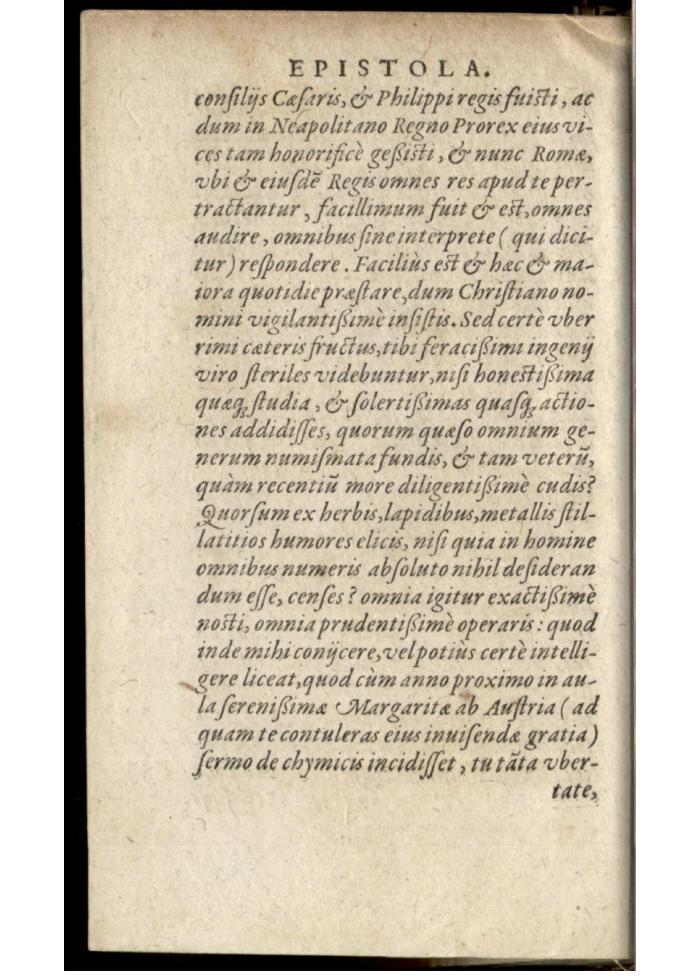 EPISTOLA.
conſilijs Cæſaris, & Philippi regis fuiſti, ac
dum in Neapolitano Regno Prorex eius vi-
ces tam honorificè geßiſti, & nunc Romæ,
vbi & eiuſdẽ Regis omnes res apud te per-
tractantur, facillimum fuit & eſt, omnes
audire, omnibus ſine interprete ( qui dici-
tur ) reſpondere. Faciliùs eſt & hæc & ma-
iora quotidie præſtare, dum Chriſtiano no-
mini vigilantißimè inſiſtis. Sed certè vber
rimi cæteris fructus, tibi feracißimi ingenij
viro ſteriles videbuntur, niſi honeſtißima
quæq; ſtudia, & ſolertißimas quaſq; actio-
nes addidiſſes, quorum quæſo omnium ge-
nerum numiſmata fundis, & tam veterũ,
quàm recentiũ more diligentißimè cudis?
Quorſum ex herbis, lapidibus, metallis ſtil-
latitios humores elicis, niſi quia in homine
omnibus numeris abſoluto nihil deſideran
dum eſſe, cenſes? omnia igitur exactißimè
noſti, omnia prudentißimè operaris: quod
inde mihi conijcere, vel potiùs certè intelli-
gere liceat, quod cùm anno proximo in au-
la ſerenißimæ Margaritæ ab Auſtria ( ad
quam te contuleras eius inuiſendæ gratia )
ſermo de chymicis incidiſſet, tu tãta vber-
tate,